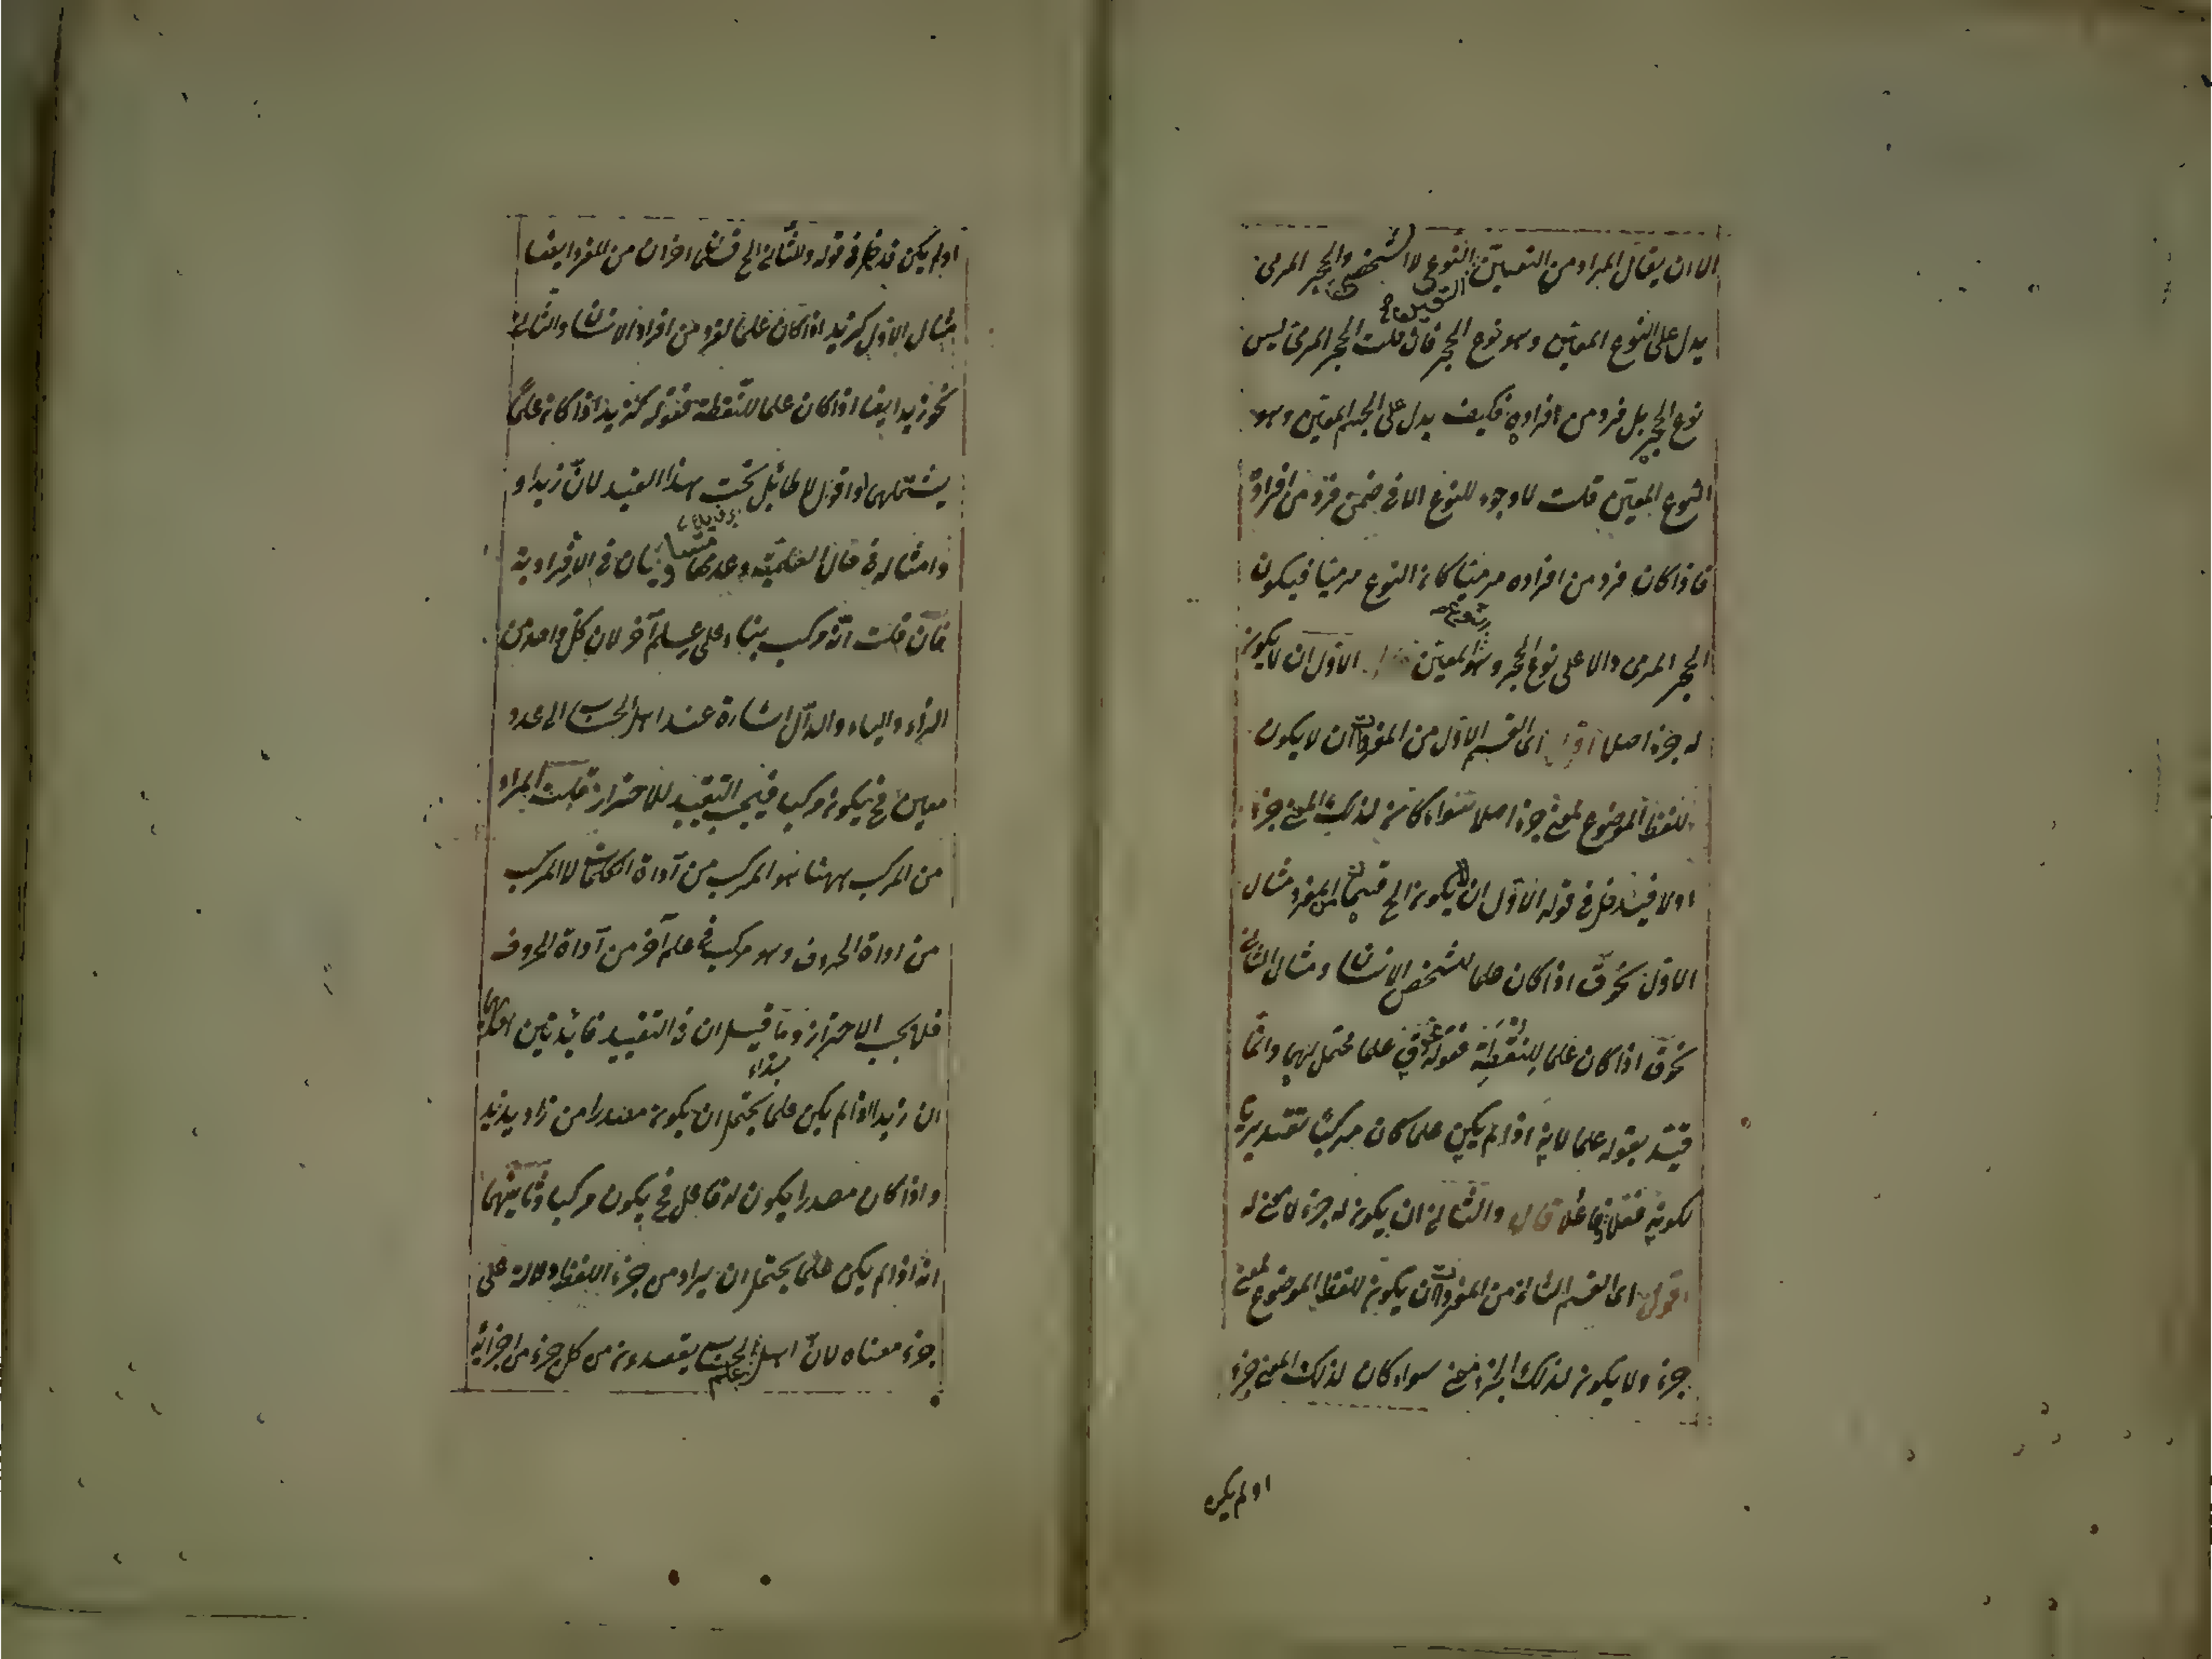 الا ان يقال المراد من التعيين النوعى لا الشخصى والحجر المرمى
التعيين
يدل على النوع المعين وهو نوع الحجر فان قلت الحجر المرمى ليس
نوع الحجر بل فرد من افراده فكيف يدل على الجسم المعين وهو
النوع المعين قلت لا وجود للنوع الا فى ضمن فرد من افراده
فاذا كان فرد من افراده مرميا كان النوع مرميا فيكون
الحجر المرمى دالا على نوع الحجر وهو المعين الاول ان لا يكون
له جزء اصلا اقول اى القسم الاول من المفردات ان لا يكون
للفظ الموضوع لمعنى جزء اصلا سواء كان لذلك المعنى جزء
اولا فيدخل فى قوله الاول ان لا يكون الخ قسمان من المفرد مثال
الاول نحو ق اذا كان علما لشخص الانسان ومثال الثانى
نحو ق اذا كان علما للنقطة فقوله نحو ق علما محتمل لهما وانما
قيد بقوله علما لانه اذا لم يكن علما كان مركبا تقديريا
لكونه فعلا وفاعلا قال والثانى ان يكون له جزء لا معنى له
اقول اى القسم الثانى من المفردات ان يكون للفظ الموضوع لمعنى
جزء ولا يكون لذلك الجزء معنى سواء كان لذلك المعنى جزء
اولم يكن
اولم يكن فدخل فى قوله والثانى الخ قسمان اخران من المفرد ايضا
مثال الاول كزيد اذا كان علما لفرد من افراد الانسان والثانى
نحو زيد ايضا اذا كان علما للنقطة فقوله كزيد اذا كان علما
يشتملهما اقول لا طائل تحت هذا القيد لان زيدا و
وامثاله فى حال العلمية وعدمها متساويان فى الافرادية
فان قلت انه مركب بناء على علم آخر لان كل واحد من
الزاء والياء والدال اشارة عند اهل الحساب الى عدد
معين فح يكون مركبا فيجب التقييد للاحتراز قلت المراد
من المركب ههنا هو المركب من آداة الكلمات لا المركب
من اداة الحروف وهو مركب فى علم آخر من آداة الحروف
فلا يجب الاحتراز وما قيل ان فى التقييد فائدتين احديهما
ان زيدا اذا لم يكن علما يحتمل ان يكون مصدرا من زاد يزيد
واذا كان مصدرا يكون له فاعل فح يكون مركبا وثانيتهما
انه اذا لم يكن علما يحتمل ان يراد من جزء اللفظ دلالة على
جزء معناه لان اهل علم الحساب يقصدون من كل جزء من اجزائه